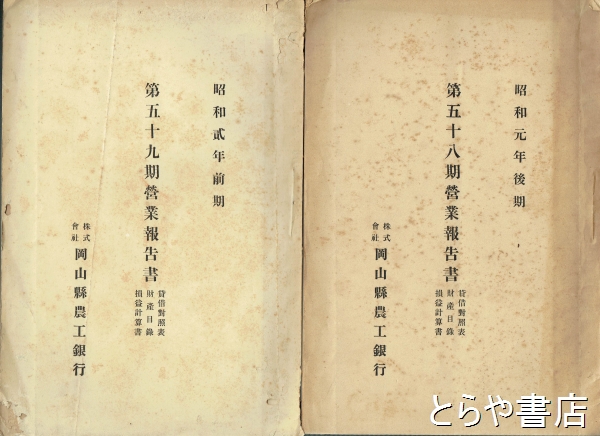 昭和元年後期
第五十八期營業報告書
貸借對照表
財產目錄
損益計算書
株式會社
岡山縣農工銀行
昭和貳年前期
第五十九期營業報告書
貸借對照表
財產目錄
損益計算書
株式會社
岡山縣農工銀行
とらや書店